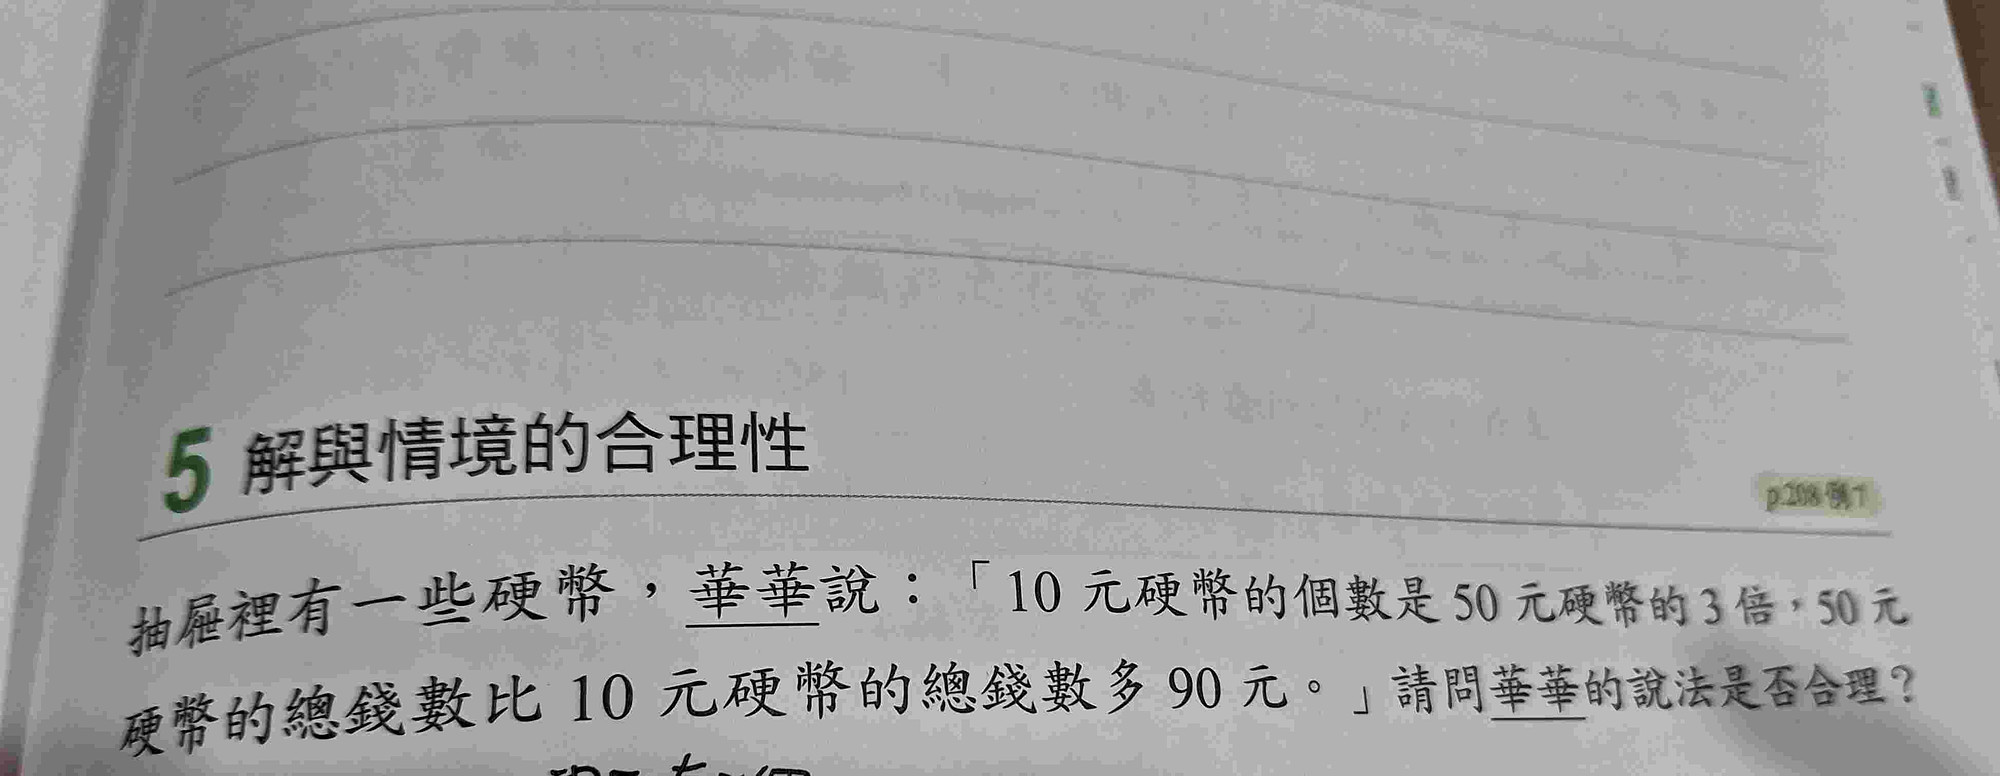 5 解與情境的合理性
p.208 例7
抽屜裡有一些硬幣，華華說：「10 元硬幣的個數是 50 元硬幣的 3 倍，50 元
硬幣的總錢數比 10 元硬幣的總錢數多 90 元。」請問華華的說法是否合理？